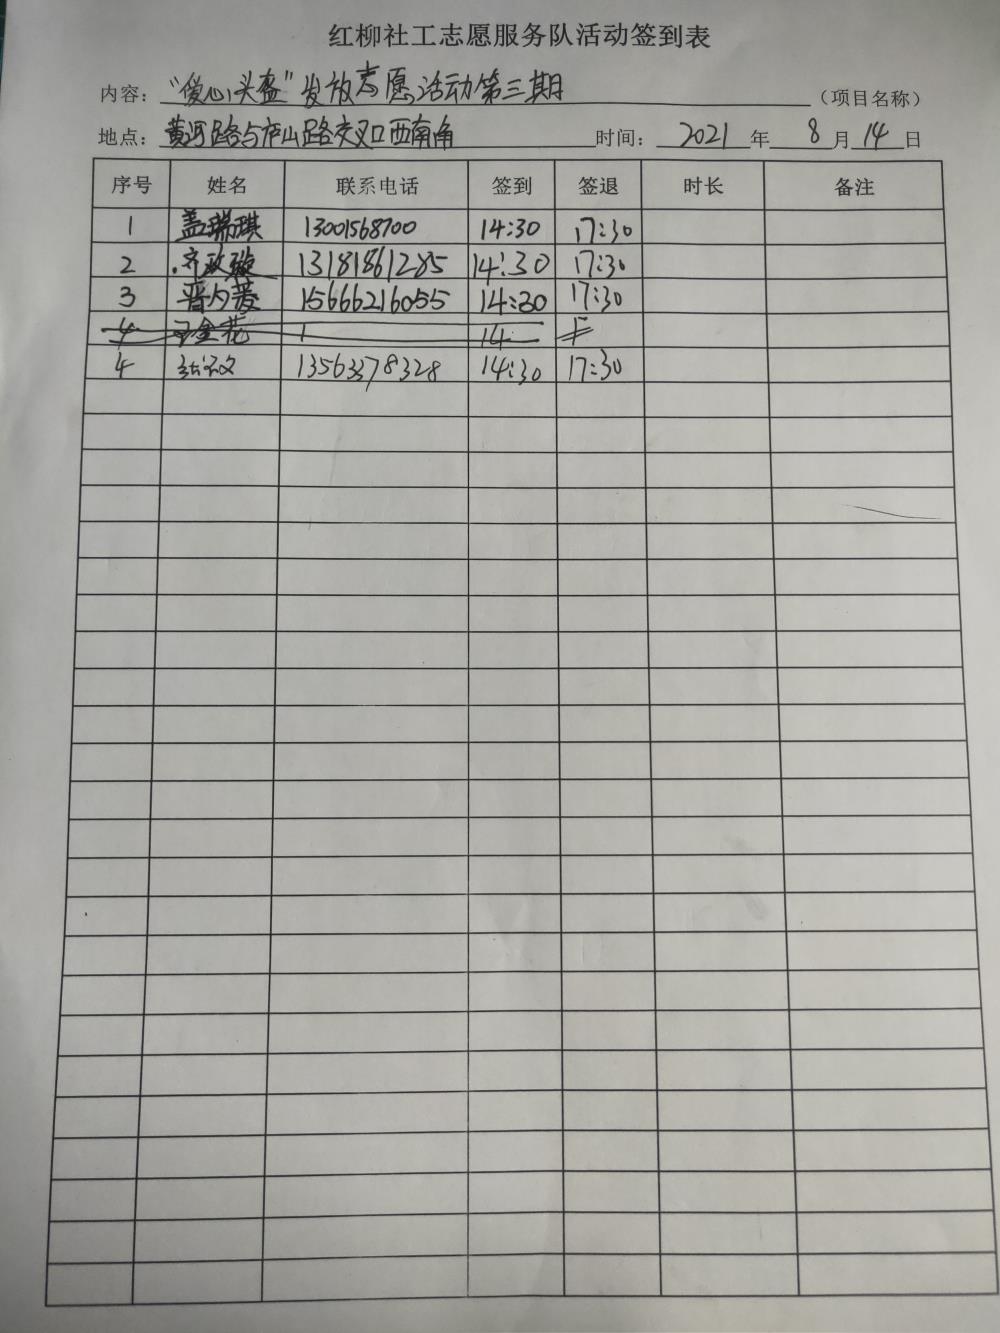 红柳社工志愿服务队活动签到表
内容：“爱心头盔”发放志愿活动第三期（项目名称）
地点：黄河路与庐山路交叉口西南角 时间：2021年8月14日
序号 姓名 联系电话 签到 签退 时长 备注
1 盖瑞琪 13001568700 14:30 17:30
2 齐玫璇 13181861285 14:30 17:30
3 晋内菱 15666216055 14:30 17:30
4 金花 1 14
4 13563378328 14:30 17:30